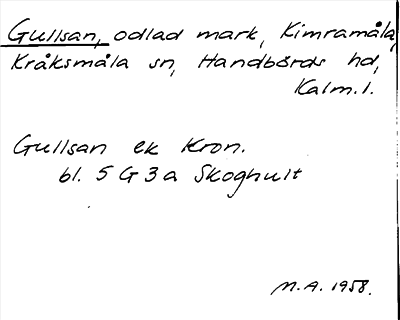 Gullsan, odlad mark, Kimramåla,
Kråksmåla sn, Handbörds hd,
Kalm.l.
Gullsan ek Kron.
bl. 5 G 3 a Skoghult
M.A. 1958.